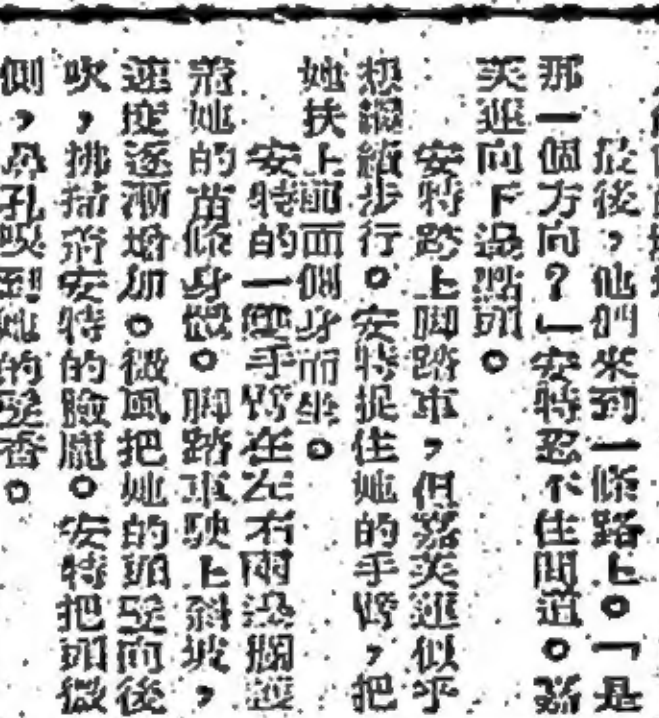 最後，他們來到一條路上。「是
那一個方向？」安特忍不住問道。嘉
芙蓮向下邊點頭。
安特跨上脚踏車，但嘉芙蓮似乎
想繼續步行。安特捉住她的手臂，把
她扶上前面側身而坐。
安特的一雙手臂在左右兩邊擱護
着她的苗條身體。脚踏車駛上斜坡，
速度逐漸增加。微風把她的頭髮向後
吹，拂着安特的臉龐。安特把頭微
側，鼻孔吸到她的髮香。